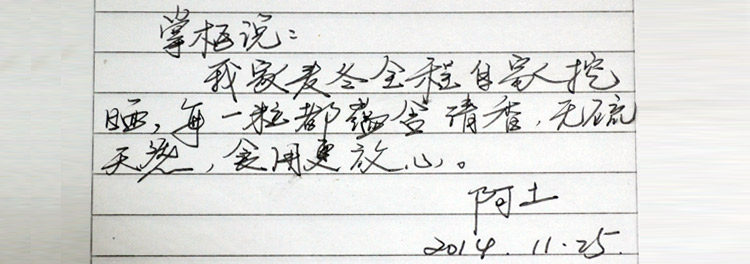 掌柜说：
我家麦冬全程自家人挖
晒，每一粒都蕴含清香，无硫
天然，食用更放心。
阿土
2014.11.25.